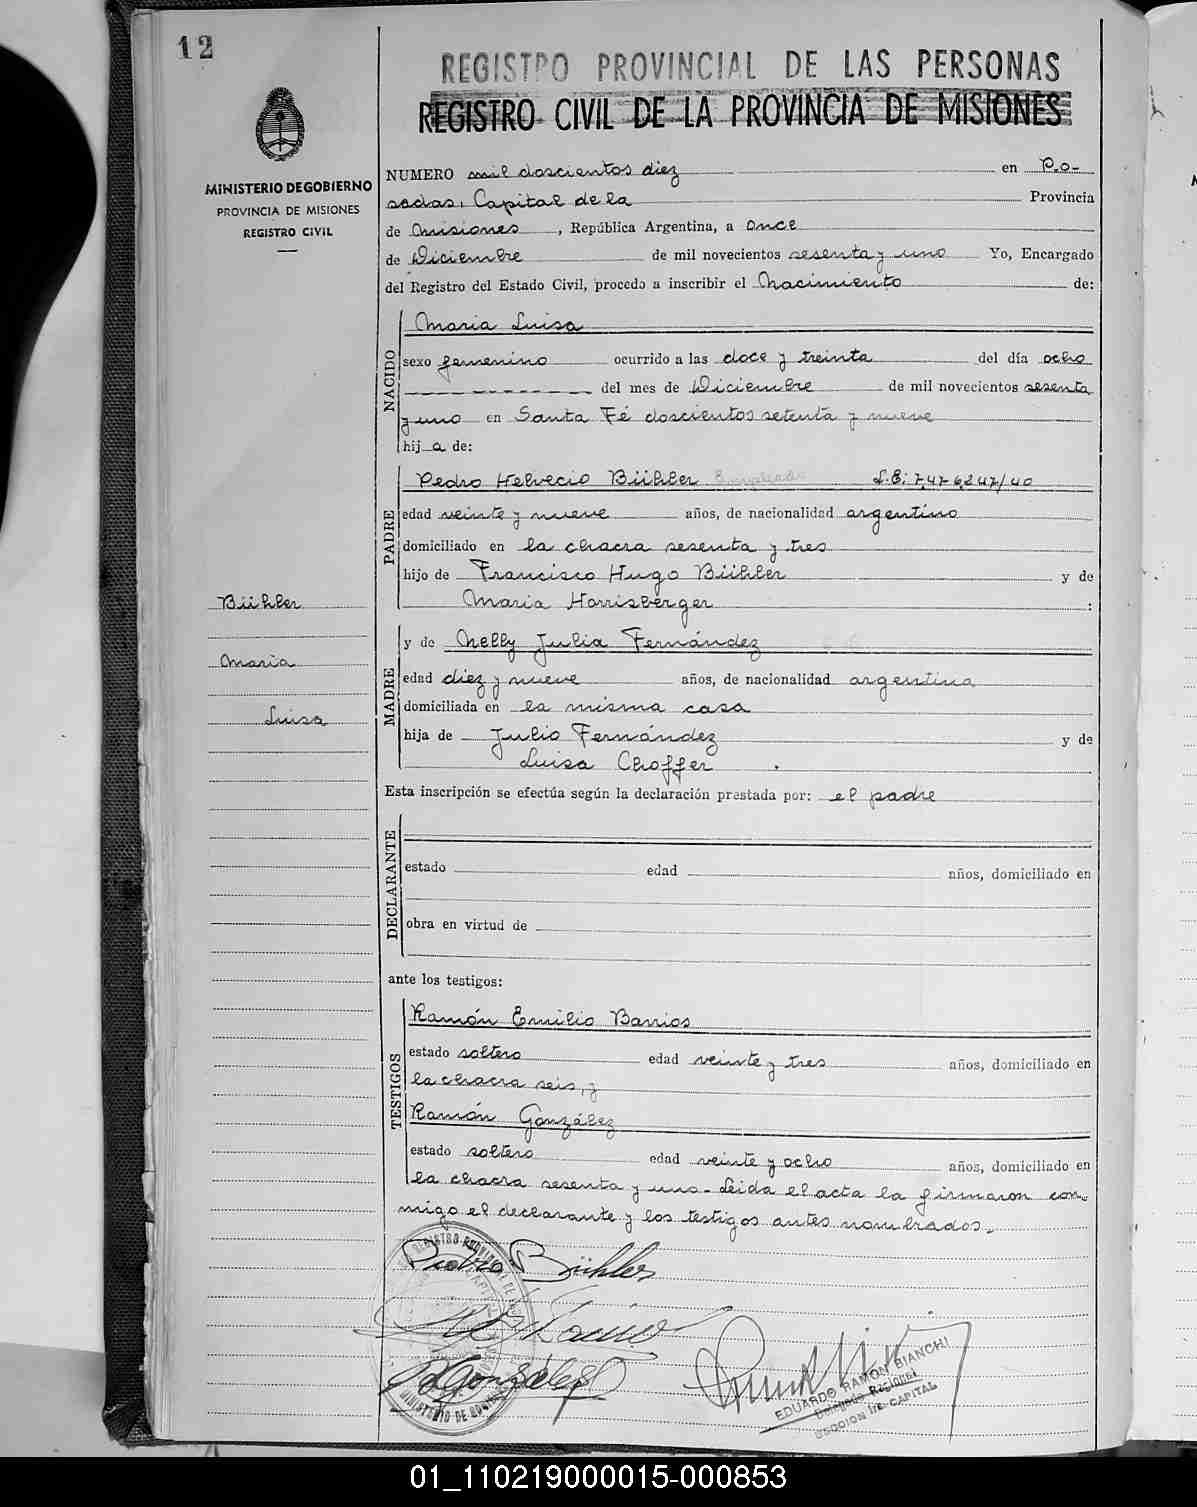 12
REGISTRO PROVINCIAL DE LAS PERSONAS
REGISTRO CIVIL DE LA PROVINCIA DE MISIONES
MINISTERIO DE GOBIERNO
PROVINCIA DE MISIONES
REGISTRO CIVIL
NUMERO mil doscientos diez en Po-
sadas, Capital de la Provincia
de Misiones, República Argentina, a once
de Diciembre de mil novecientos sesenta y uno Yo, Encargado
del Registro del Estado Civil, procedo a inscribir el Nacimiento de:
NACIDO
Maria Luisa
sexo femenino ocurrido a las doce y treinta del día ocho
del mes de Diciembre de mil novecientos sesenta
y uno en Santa Fé doscientos setenta y nueve
hij a de:
PADRE
Pedro Helvecio Bühler Empleado L.E: 7.476.247/40
edad veinte y nueve años, de nacionalidad argentino
domiciliado en la chacra sesenta y tres
hijo de Francisco Hugo Bühler y de
Maria Harrisberger :
Bühler
Maria
Luisa
MADRE
y de Nelly Julia Fernández
edad diez y nueve años, de nacionalidad argentina
domiciliada en la misma casa
hija de Julio Fernández y de
Luisa Choffer .
Esta inscripción se efectúa según la declaración prestada por: el padre
DECLARANTE
estado edad años, domiciliado en
obra en virtud de
ante los testigos:
TESTIGOS
Ramón Emilio Barrios
estado soltero edad veinte y tres años, domiciliado en
la chacra seis, y
Ramón González
estado soltero edad veinte y ocho años, domiciliado en
la chacra sesenta y uno - Leida el acta la firmaron con-
migo el declarante y los testigos antes nombrados.
Pedro Bühler
González
EDUARDO RAMON BIANCHI
Delegado Regional
SECCION 1ra. CAPITAL
01_110219000015-000853